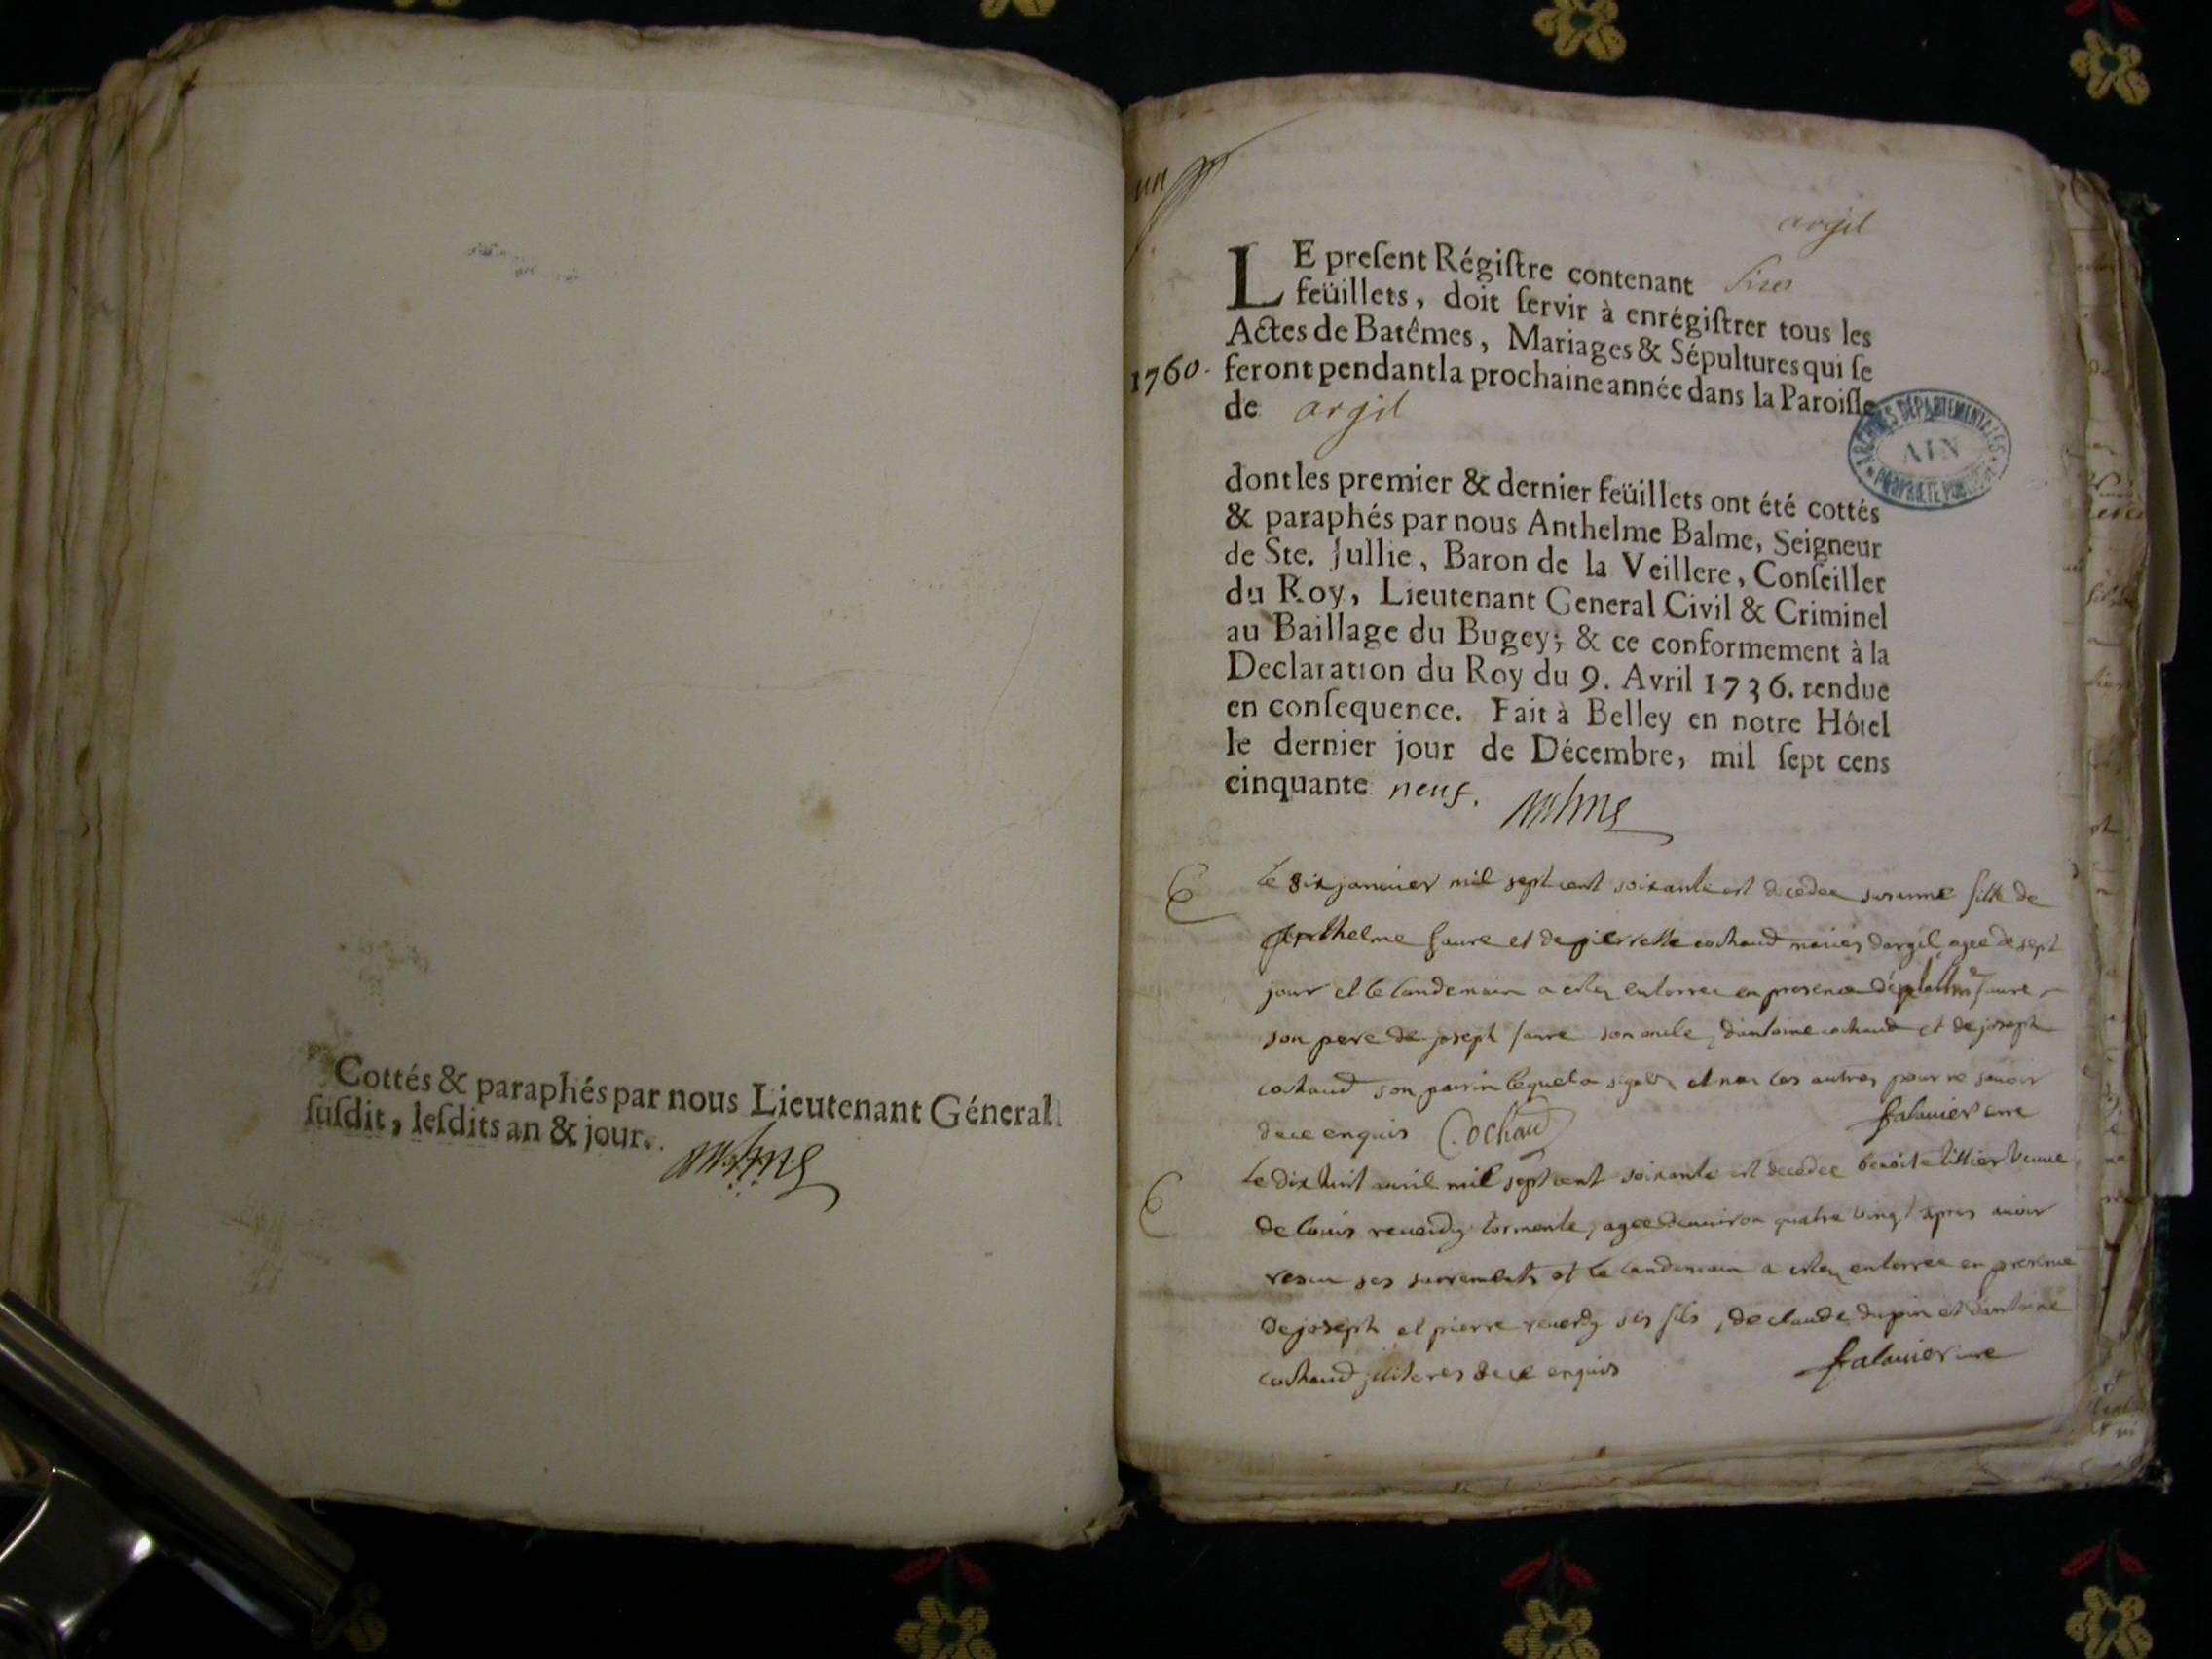 Cottés & paraphés par nous Lieutenant Géneral
susdit, lesdits an & jour.
un
argil
LE present Régistre contenant six
feüillets, doit servir à enrégistrer tous les
Actes de Batêmes, Mariages & Sépultures qui se
1760. feront pendant la prochaine année dans la Paroisse
de argil
ARCHIVES DÉPARTEMENTALES
AIN
PROPRIÉTÉ PUBLIQUE
dont les premier & dernier feüillets ont été cottés
& paraphés par nous Anthelme Balme, Seigneur
de Ste. Jullie, Baron de la Veillere, Conseiller
du Roy, Lieutenant General Civil & Criminel
au Baillage du Bugey; & ce conformement à la
Declaration du Roy du 9. Avril 1736. rendue
en consequence. Fait à Belley en notre Hôtel
le dernier jour de Décembre, mil sept cens
cinquante neuf.
Le six janvier mil sept cent soixante est decedee susanne fille de
anthelme faure et de pierrette cochaud mariés dargil agee de sept
jour et le landemain a esté enterree en presence danthelme faure
son pere de joseph faure son oncle, dantoine cochaud et de joseph
cochaud son parrin lequel a signé et non les autres pour ne savoir
de ce enquis Cochaud falavier cure
Le dix huit avril mil sept cent soixante est decedee benoite veuve
de louis reverdy, agee denviron quatre vingt apres avoir
receu ses sacrements et le landemain a esté enterree en presence
de joseph et pierre reverdy ses fils, de claude dupin et dantoine
cochaud illiteres de ce enquis falavier cure